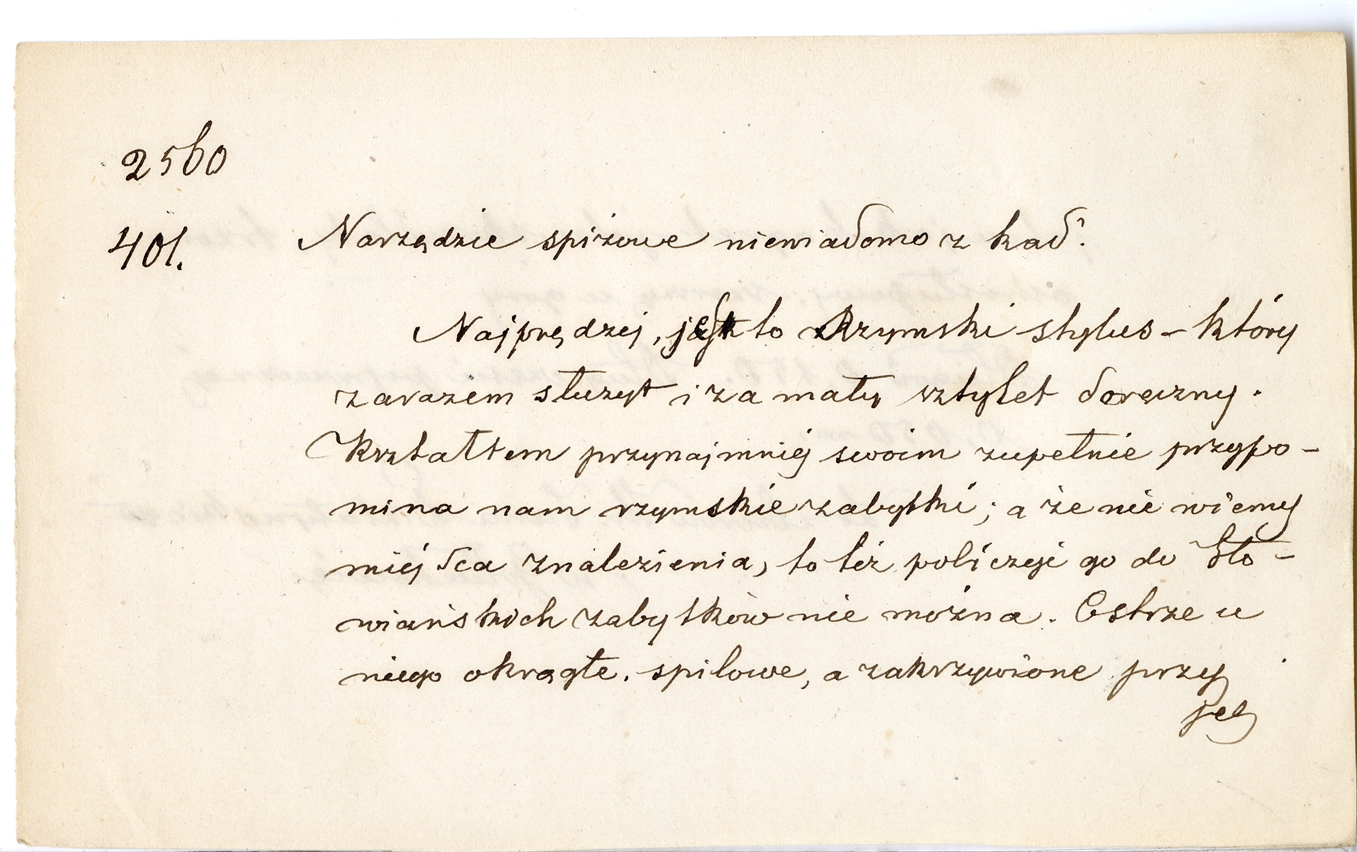 2560
401. Narzędzie spiżowe niewiadomo z kąd.
Najprędzej, jest to Rzymski stylus – który
zarazem służył i za mały sztylet doręczny.
Kształtem przynajmniéj swoim zupełnie przypo-
mina nam rzymskie zabytki; a że nie wiemy
miéjsca znalezienia, to też policzyć go do Sło-
wiańskich zabytków nie można. Ostrze u
niego okrągłe. spilowe, a zakrzywione przy
jeg